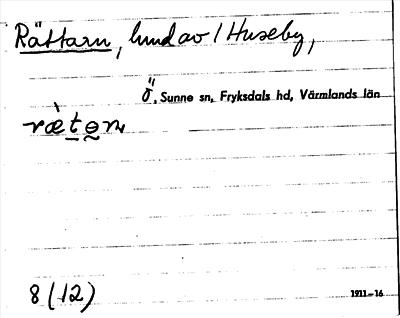 Rättarn, hmd av 1 Huseby,
Ö, Sunne sn, Fryksdals hd, Värmlands län
ræ̀tən
8 (12)
1911–16